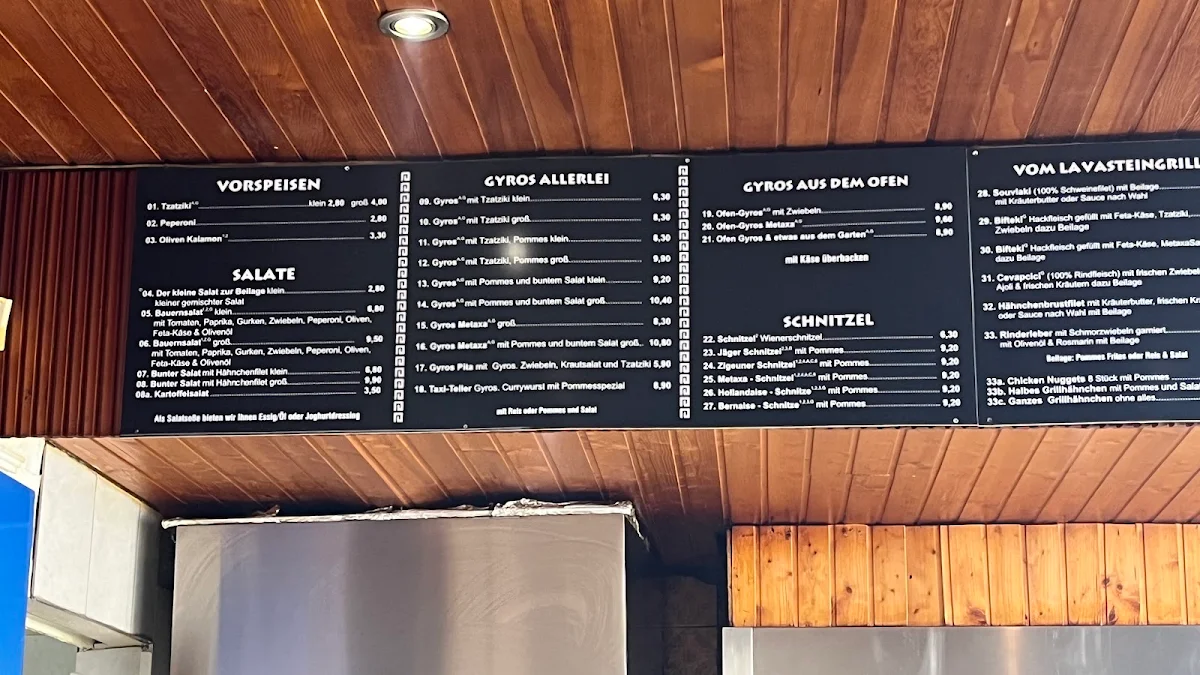 VORSPEISEN
01. Tzatziki klein 2,80 groß 4,00
02. Peperoni 2,80
03. Oliven Kalamen 3,30
SALATE
04. Der kleine Salat zur Beilage klein 2,80
kleiner gemischter Salat
05. Bauernsalat klein 6,80
mit Tomaten, Paprika, Gurken, Zwiebeln, Peperoni, Oliven,
Feta-Käse & Olivenöl
06. Bauernsalat groß 9,50
mit Tomaten, Paprika, Gurken, Zwiebeln, Peperoni, Oliven,
Feta-Käse & Olivenöl
07. Bunter Salat mit Hähnchenfilet klein 6,80
08. Bunter Salat mit Hähnchenfilet groß 9,90
08a. Kartoffelsalat 3,50
Als Salatsoße bieten wir Ihnen Essig/Öl oder Joghurtdressing
GYROS ALLERLEI
09. Gyros mit Tzatziki klein 6,30
10. Gyros mit Tzatziki groß 8,30
11. Gyros mit Tzatziki, Pommes klein 8,30
12. Gyros mit Tzatziki, Pommes groß 9,90
13. Gyros mit Pommes und buntem Salat klein 9,20
14. Gyros mit Pommes und buntem Salat groß 10,40
15. Gyros Metaxa groß 8,30
16. Gyros Metaxa mit Pommes und buntem Salat groß 10,80
17. Gyros Pita mit Gyros, Zwiebeln, Krautsalat und Tzatziki 5,90
18. Taxi-Teller Gyros, Currywurst mit Pommesspezial 8,90
mit Reis oder Pommes und Salat
GYROS AUS DEM OFEN
19. Ofen-Gyros mit Zwiebeln 8,90
20. Ofen-Gyros Metaxa 9,60
21. Ofen Gyros & etwas aus dem Garten 8,90
mit Käse überbacken
SCHNITZEL
22. Schnitzel Wienerschnitzel 6,30
23. Jäger Schnitzel mit Pommes 9,20
24. Zigeuner Schnitzel mit Pommes 9,20
25. Metaxa - Schnitzel mit Pommes 9,20
26. Hollandaise - Schnitze mit Pommes 9,20
27. Bernaise - Schnitze mit Pommes 9,20
VOM LAVASTEINGRILL
28. Souvlaki (100% Schweinefilet) mit Beilage
mit Kräuterbutter oder Sauce nach Wahl
29. Bifteki Hackfleisch gefüllt mit Feta-Käse, Tzatziki,
Zwiebeln dazu Beilage
30. Bifteki Hackfleisch gefüllt mit Feta-Käse,
dazu Beilage
31. Cevapcici (100% Rindfleisch) mit frischen
Ajoli & frischen Kräutern dazu Beilage
32. Hähnchenbrustfilet mit Kräuterbutter, frischen
oder Sauce nach Wahl mit Beilage
33. Rinderleber mit Schmorzwiebeln garniert
mit Olivenöl & Rosmarin mit Beilage
Beilage: Pommes Frites oder Reis & Salat
33a. Chicken Nuggets 8 Stück mit Pommes
33b. Halbes Grillhähnchen mit Pommes und
33c. Ganzes Grillhähnchen ohne alles